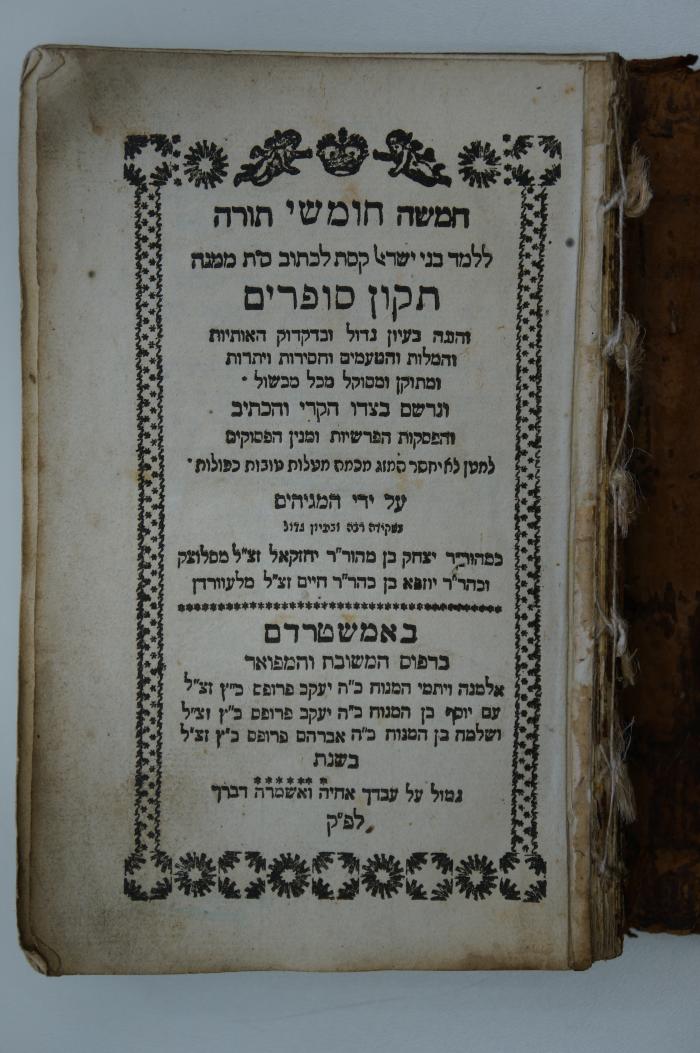 חמשה חומשי תורה
ללמד בני ישראל קסת לכתוב ס״ת ממנה
תקון סופרים
והוגה בעיון גדול ובדקדוק האותיות
והמלות והטעמים וחסירות ויתרות
ומתוקן ומסוקל מכל מכשול ׃
ונרשם בצדו הקרי והכתיב
והפסקות הפרשיות ומנין הפסוקים
למען לא יחסר המזג מכמה מעלות טובות כפולות׃
על ידי המגיהים
בשקידה רבה ובעיון גדול
כמהור״ר יצחק בן מהור״ר יחזקאל זצ״ל מסלוצק
וכהר״ר יוזפא בן כהר״ר חיים זצ״ל מלעוורדן
באמשטרדם
בדפוס המשובח והמפואר
אלמנה ויתמי המנוח כ״ה יעקב פרופס כ״ץ זצ״ל
עם יוסף בן המנוח כ״ה יעקב פרופס כ״ץ זצ״ל
ושלמה בן המנוח כ״ה אברהם פרופס כ״ץ זצ״ל
בשנת
גמול על עבדך אחיה ואשמרה דברך
לפ״ק